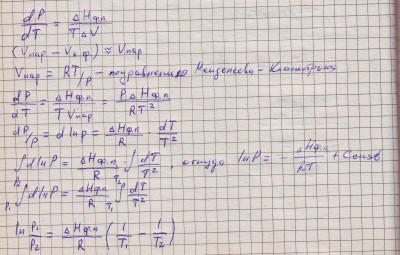 dP/dT = ΔHф.п/TΔV
(Vпар − Vк.ф) ≈ Vпар
Vпар = RT/P – по уравнению Менделеева-Клапейрона
dP/dT = ΔHф.п/TVпар = PΔHф.п/RT²
dP/P = dlnP = ΔHф.п/R · dT/T²
∫dlnP = ΔHф.п/R · ∫dT/T², откуда lnP = − ΔHф.п/RT + Const
P₁ ∫ P₂ dlnP = ΔHф.п/R T₁ ∫ T₂ dT/T²
ln P₁/P₂ = ΔHф.п/R (1/T₁ − 1/T₂)